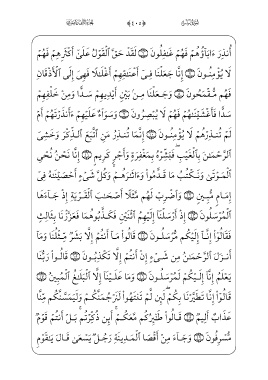 أُنذِرَ ءَابَآؤُهُمْ فَهُمْ غَٰفِلُونَ ۝ لَقَدْ حَقَّ ٱلْقَوْلُ عَلَىٰٓ أَكْثَرِهِمْ فَهُمْ
لَا يُؤْمِنُونَ ۝ إِنَّا جَعَلْنَا فِىٓ أَعْنَٰقِهِمْ أَغْلَٰلًا فَهِىَ إِلَى ٱلْأَذْقَانِ
فَهُم مُّقْمَحُونَ ۝ وَجَعَلْنَا مِنۢ بَيْنِ أَيْدِيهِمْ سَدًّا وَمِنْ خَلْفِهِمْ
سَدًّا فَأَغْشَيْنَٰهُمْ فَهُمْ لَا يُبْصِرُونَ ۝ وَسَوَآءٌ عَلَيْهِمْ ءَأَنذَرْتَهُمْ أَمْ
لَمْ تُنذِرْهُمْ لَا يُؤْمِنُونَ ۝ إِنَّمَا تُنذِرُ مَنِ ٱتَّبَعَ ٱلذِّكْرَ وَخَشِىَ
ٱلرَّحْمَٰنَ بِٱلْغَيْبِ فَبَشِّرْهُ بِمَغْفِرَةٍ وَأَجْرٍ كَرِيمٍ ۝ إِنَّا نَحْنُ نُحْىِ
ٱلْمَوْتَىٰ وَنَكْتُبُ مَا قَدَّمُوا۟ وَءَاثَٰرَهُمْ وَكُلَّ شَىْءٍ أَحْصَيْنَٰهُ فِىٓ
إِمَامٍ مُّبِينٍ ۝ وَٱضْرِبْ لَهُم مَّثَلًا أَصْحَٰبَ ٱلْقَرْيَةِ إِذْ جَآءَهَا
ٱلْمُرْسَلُونَ ۝ إِذْ أَرْسَلْنَآ إِلَيْهِمُ ٱثْنَيْنِ فَكَذَّبُوهُمَا فَعَزَّزْنَا بِثَالِثٍ
فَقَالُوٓا۟ إِنَّآ إِلَيْكُم مُّرْسَلُونَ ۝ قَالُوا۟ مَآ أَنتُمْ إِلَّا بَشَرٌ مِّثْلُنَا وَمَآ
أَنزَلَ ٱلرَّحْمَٰنُ مِن شَىْءٍ إِنْ أَنتُمْ إِلَّا تَكْذِبُونَ ۝ قَالُوا۟ رَبُّنَا
يَعْلَمُ إِنَّآ إِلَيْكُمْ لَمُرْسَلُونَ ۝ وَمَا عَلَيْنَآ إِلَّا ٱلْبَلَٰغُ ٱلْمُبِينُ ۝
قَالُوٓا۟ إِنَّا تَطَيَّرْنَا بِكُمْ لَئِن لَّمْ تَنتَهُوا۟ لَنَرْجُمَنَّكُمْ وَلَيَمَسَّنَّكُم مِّنَّا
عَذَابٌ أَلِيمٌ ۝ قَالُوا۟ طَٰٓئِرُكُم مَّعَكُمْ أَئِن ذُكِّرْتُم بَلْ أَنتُمْ قَوْمٌ
مُّسْرِفُونَ ۝ وَجَآءَ مِنْ أَقْصَا ٱلْمَدِينَةِ رَجُلٌ يَسْعَىٰ قَالَ يَٰقَوْمِ